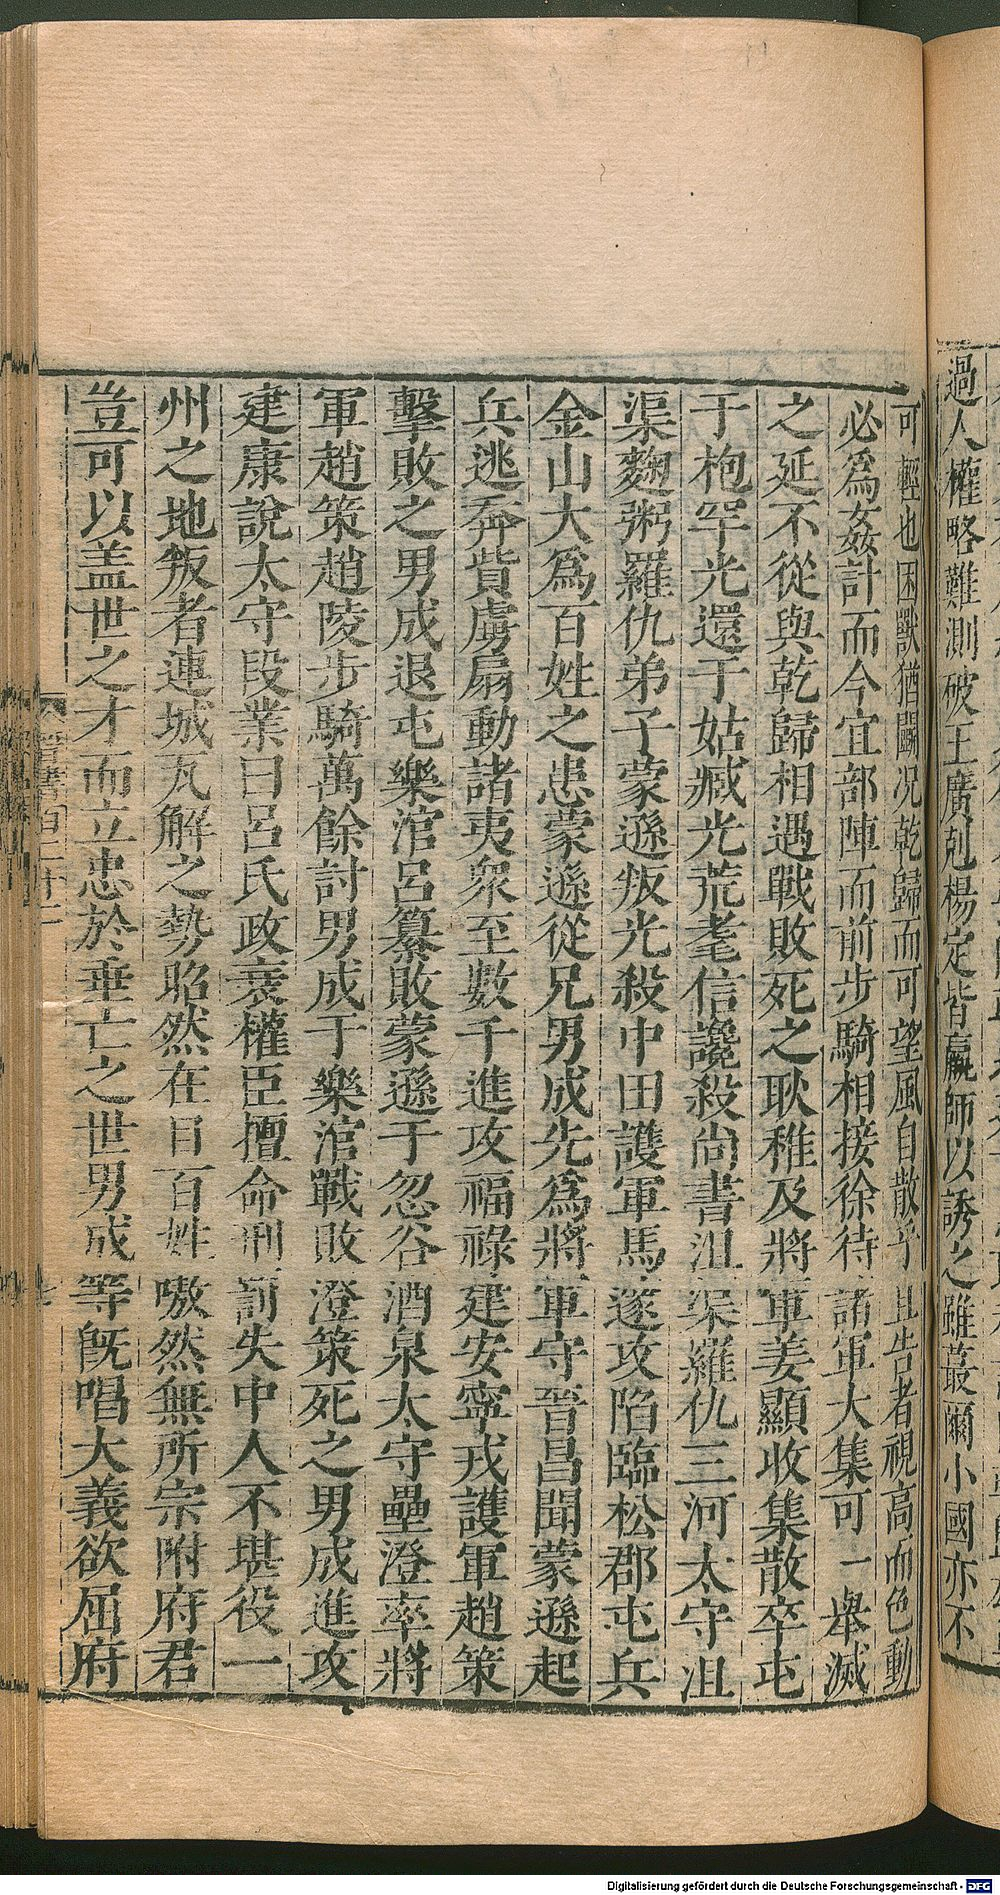 過人權略難測破王廣剋楊定皆羸師以誘之雖蕞爾小國亦不
可輕也困獸猶鬭况乾歸而可望風自散乎且告者視高而色動
必爲姦計而今宜部陣而前步騎相接徐待諸軍大集可一舉滅
之延不從與乾歸相遇戰敗死之耿稚及將軍姜顯收集散卒屯
于枹罕光還于姑臧光荒耄信讒殺尚書沮渠羅仇三河太守沮
渠麴粥羅仇弟子蒙遜叛光殺中田護軍馬邃攻陷臨松郡屯兵
金山大爲百姓之患蒙遜從兄男成先爲將軍守晉昌聞蒙遜起
兵逃奔貲虜扇動諸夷衆至數千進攻福祿建安寧戎護軍趙策
擊敗之男成退屯樂涫呂纂敗蒙遜于忽谷酒泉太守壘澄率將
軍趙策趙陵步騎萬餘討男成于樂涫戰敗澄策死之男成進攻
建康說太守段業曰呂氏政衰權臣擅命刑罰失中人不堪役一
州之地叛者連城瓦解之勢昭然在目百姓嗷然無所宗附府君
豈可以盖世之才而立忠於垂亡之世男成等旣唱大義欲屈府
晉書百二十二
Digitalisierung gefördert durch die Deutsche Forschungsgemeinschaft - DFG